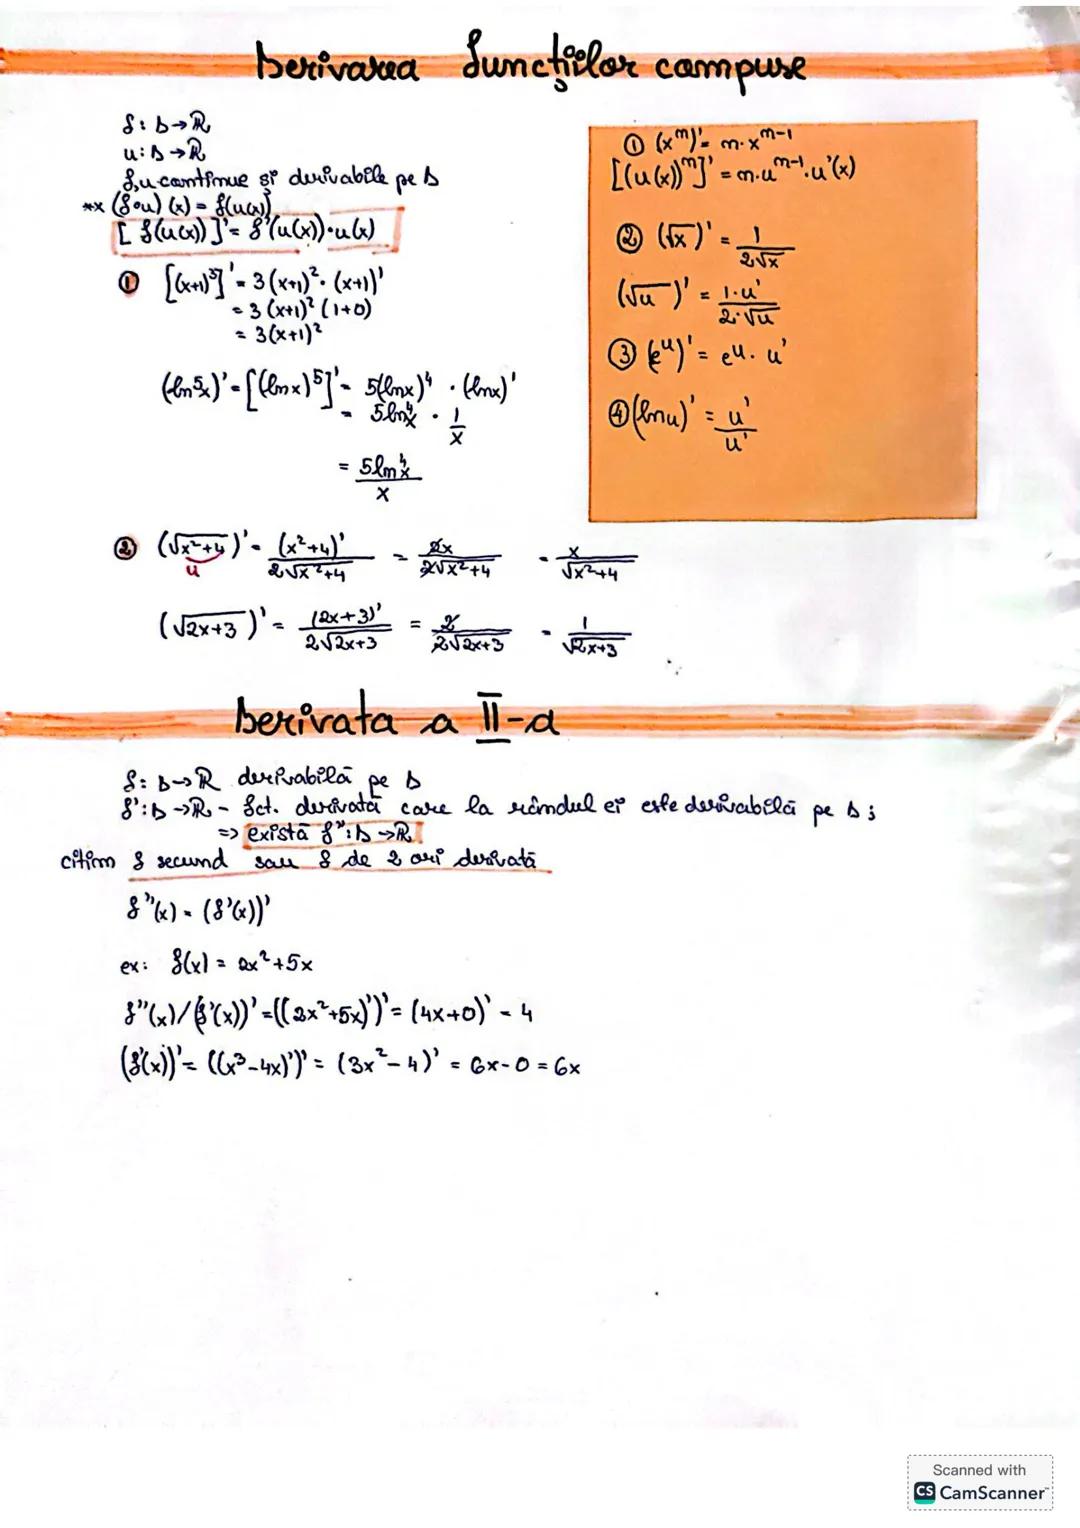 Derivarea funcțiilor compuse
f: D→ℝ
u: D→ℝ
f,u-continue și derivabile pe D
** (f∘u)(x) = f(u(x))
[f(u(x))]' = f'(u(x))·u(x)
① [(x+1)³]' = 3(x+1)²·(x+1)'
= 3(x+1)²(1+0)
= 3(x+1)²
(ln⁵x)' = [(lnx)⁵]' = 5(lnx)⁴ · (lnx)'
= 5ln⁴x · 1/x
= 5ln⁴x/x
① (xⁿ)' = n·xⁿ⁻¹
[(u(x))ⁿ]' = n·uⁿ⁻¹·u'(x)
② (√x)' = 1/2√x
(√u)' = 1·u'/2·√u
③ (eᵘ)' = eᵘ·u'
④ (lnu)' = u'/u'
② (√x²+4)' = (x²+4)'/2√x²+4 = 2x/2√x²+4 = x/√x²+4
u
(√2x+3)' = (2x+3)'/2√2x+3 = 2/2√2x+3 = 1/√2x+3
Derivata a II-a
f: D→ℝ derivabilă pe D
f': D→ℝ - fct. derivată care la rândul ei este derivabilă pe D;
=> există f'': D→ℝ
citim f secund sau f de 2 ori derivată
f''(x) = (f'(x))'
ex: f(x) = 2x²+5x
f''(x)/(f'(x))' = ((2x²+5x)')' = (4x+0)' = 4
(f'(x))' = ((x³-4x)')' = (3x²-4)' = 6x-0 = 6x
Scanned with
CS CamScanner™